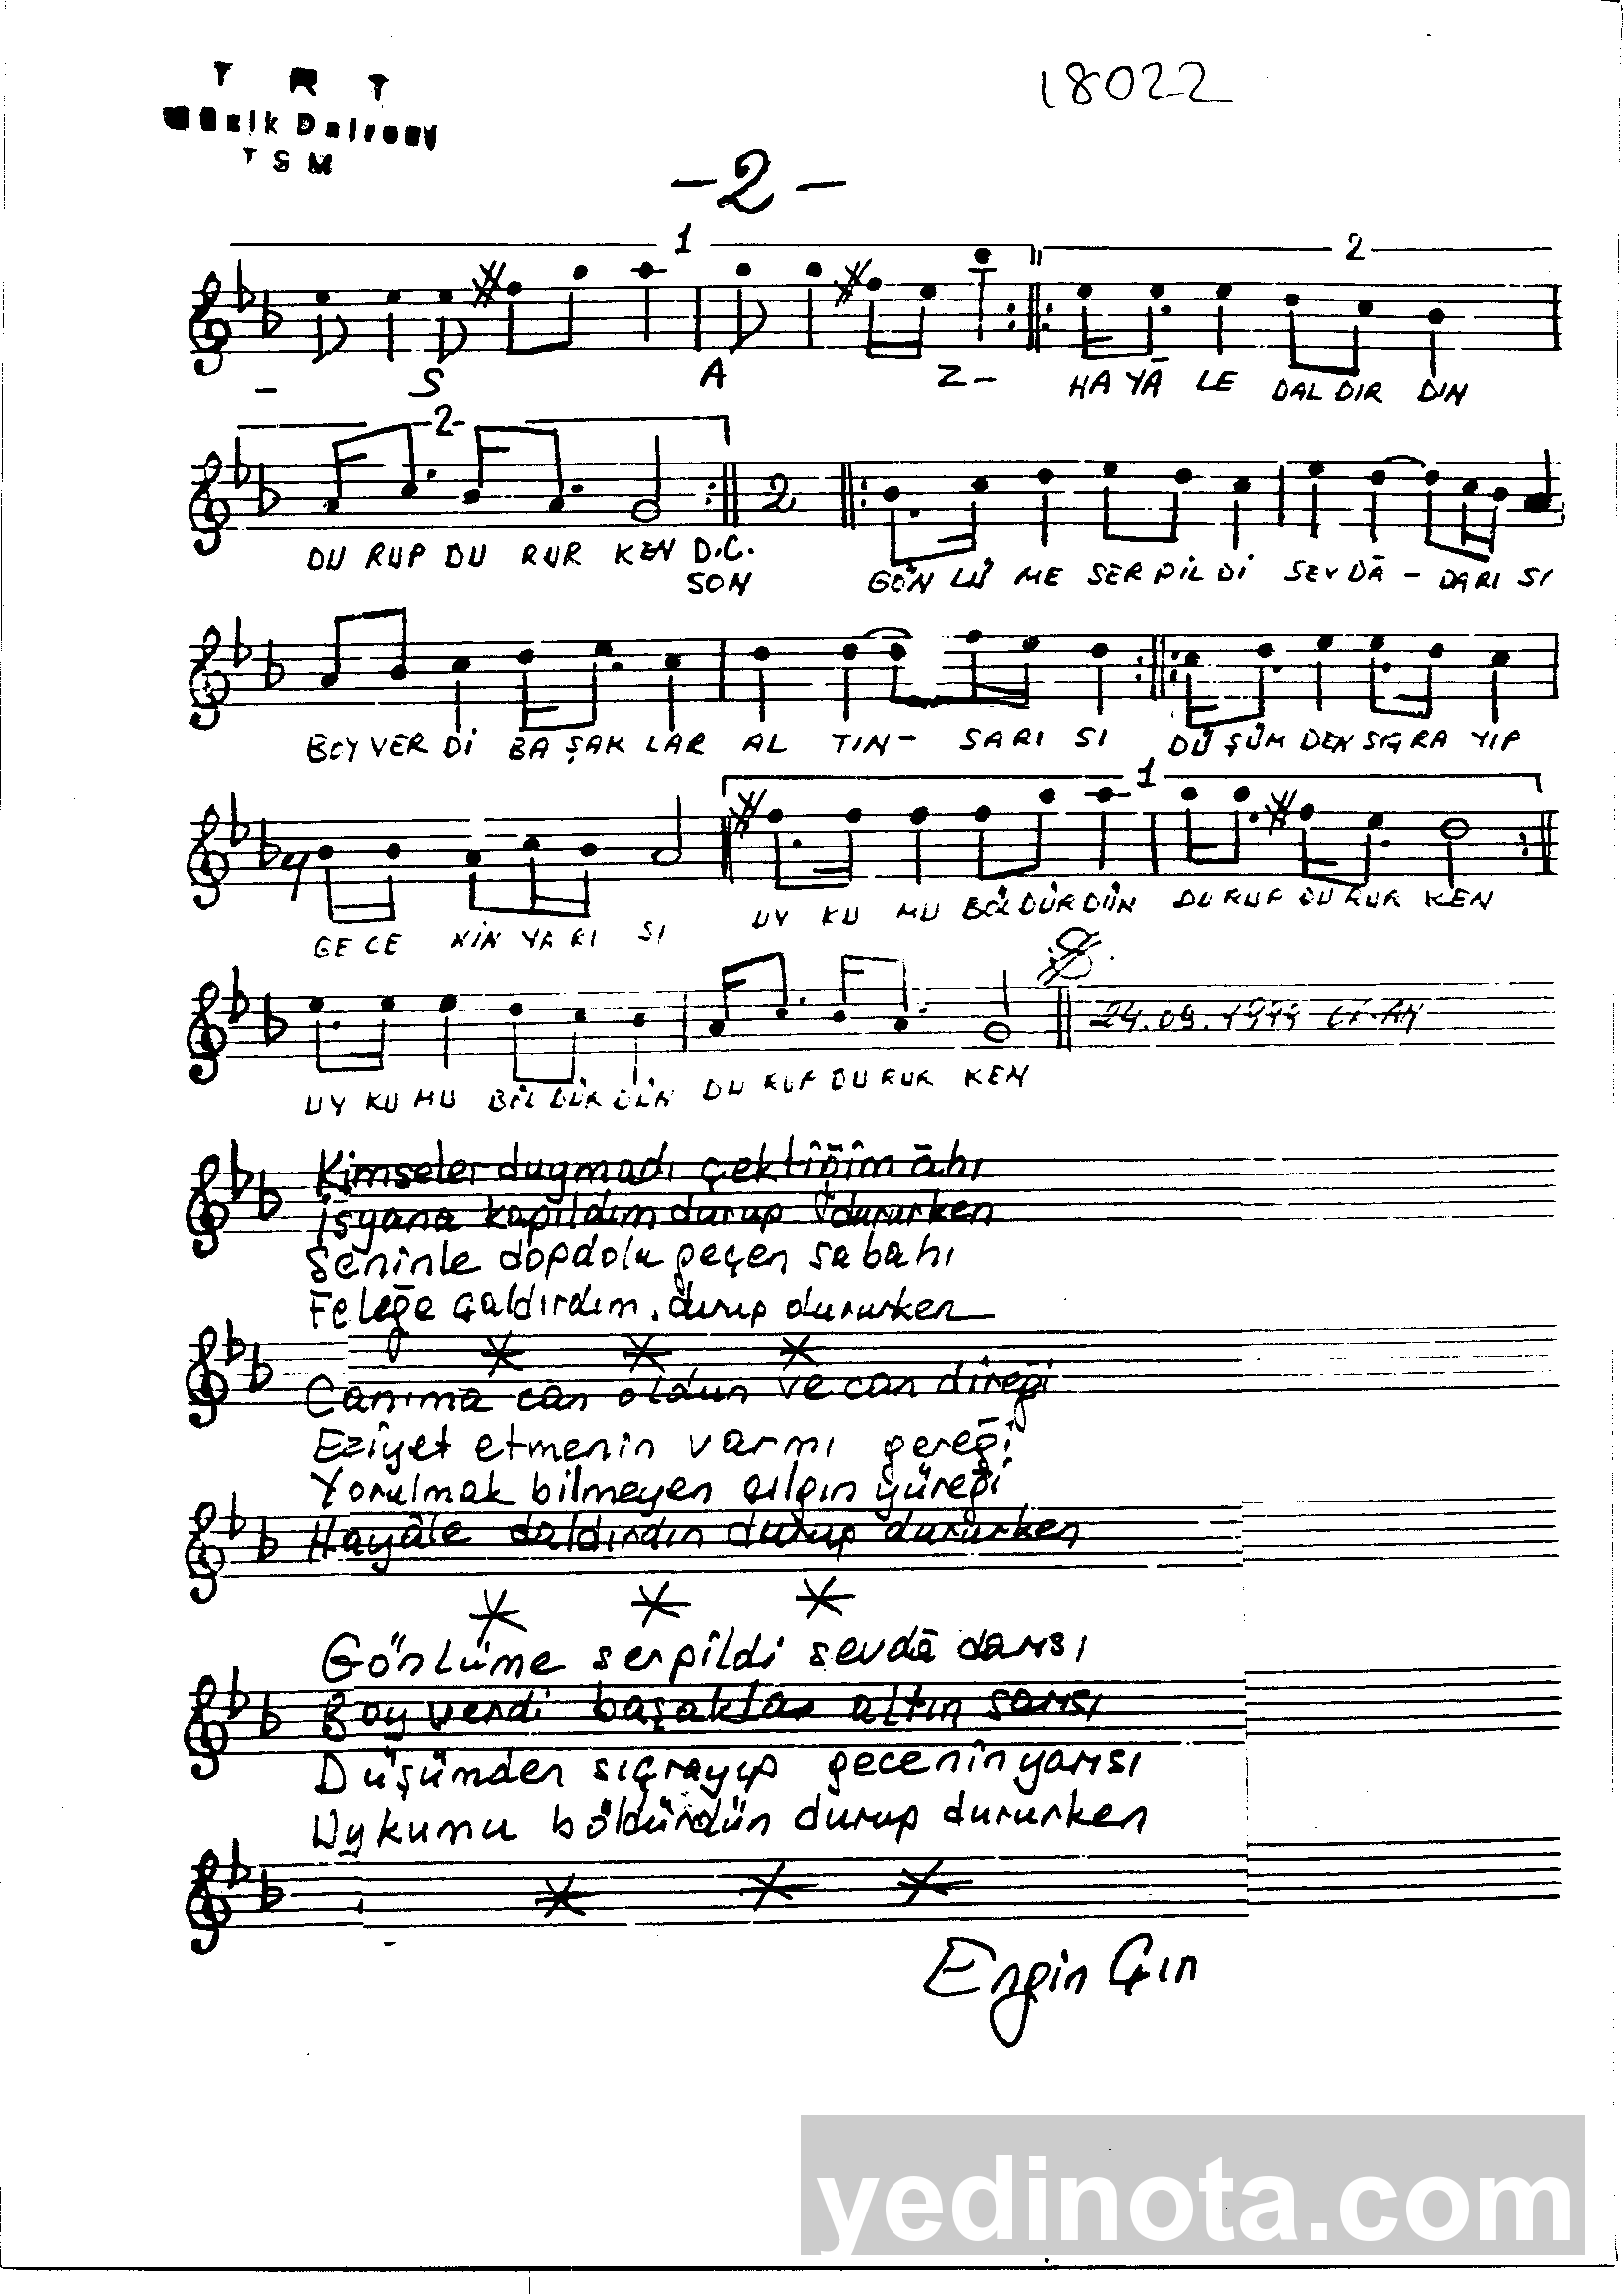 T R T
Müzik Dairesi
TSM
18022
-2-
1 2
- S A Z - HA YÂ LE DAL DIR DIN
2
DU RUP DU RUR KEN D.C. 2 GÖN LÜ ME SER PİL Dİ SEV DÂ - DARI SI
SON
BOY VER Dİ BA ŞAK LAR AL TIN - SARI SI DÜ ŞÜM DEN SIÇ RA YIP
1
GE CE NİN YA RI SI UY KU MU BÖL DÜR DÜN DU RUP DU RUR KEN
24.09.1999
UY KU MU BÖL DÜR DÜN DU RUP DU RUR KEN
Kimseler duymadı çektiğim âhı
İsyana kapıldım durup dururken
Seninle dopdolu geçen sabahı
Feleğe çaldırdım durup dururken
Canıma can oldun ve can direği
Eziyet etmenin varmı gereği
Yorulmak bilmeyen çılgın yüreği
Hayâle daldırdın durup dururken
Gönlüme serpildi sevdâ darısı
Boy verdi başaklar altın sarısı
Düşümden sıçrayıp gecenin yarısı
Uykumu böldürdün durup dururken
Engin Çır
yedinota.com